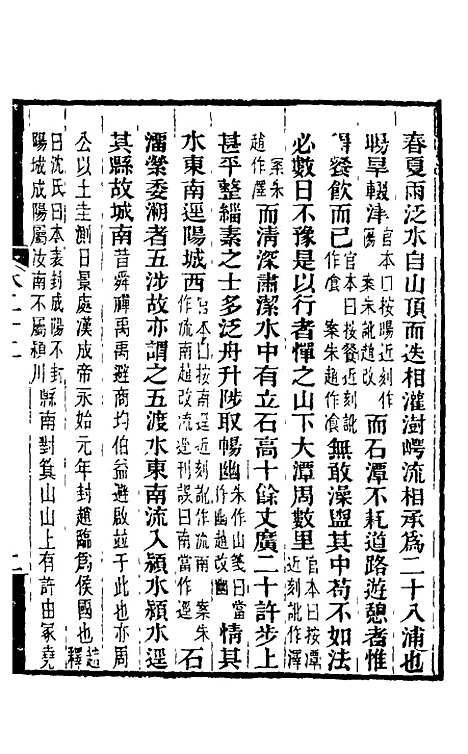 春夏雨泛水自山頂而迭相灌澍崿流相承為二十八浦也
暘旱輟津官本曰按暘近刻作陽案朱訛趙改而石潭不耗道路遊憩者惟
得餐飲而已官本曰按餐近刻訛作飡案朱趙作飡無敢澡盥其中苟不如法
必數日不豫是以行者憚之山下大潭周數里官本曰按潭近刻訛作澤
案朱趙作澤而清深肅潔水中有立石高十餘丈廣二十許步上
甚平整緇素之士多泛舟升陟取暢幽朱作山箋曰當作幽趙改幽情其
水東南逕陽城西官本曰按南逕近刻訛作流南案朱作流南趙改流逕刊誤曰南當作逕石
濡縈委溯者五涉故亦謂之五渡水東南流入潁水潁水逕
其縣故城南昔舜禪禹禹避商均伯益避啟並于此也亦周
公以土圭測日景處漢成帝永始元年封趙臨為侯國也趙釋
曰沈氏曰本表封成陽不封陽城成陽屬汝南不屬潁川縣南對箕山山上有許由冢堯